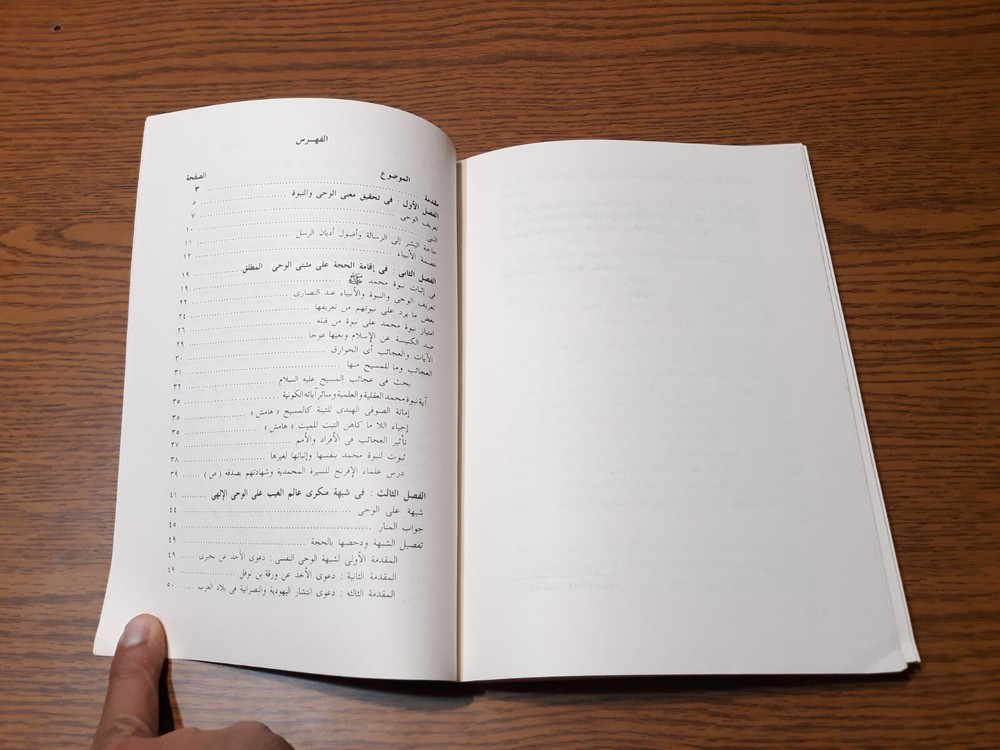 الفهـرس
الموضوع الصفحة
مقدمة ........ ٣
الفصل الأول : فى تحقيق معنى الوحى والنبوة ........ ٥
تعريف الوحى ........ ٧
النبى ........ ١٠
حاجة البشر إلى الرسالة وأصول أديان الرسل ........ ١١
عصمة الأنبياء ........ ١٢
الفصل الثانى : فى إقامة الحجة على مثبتى الوحى المطلق ........ ١٩
فى إثبات نبوة محمد ﷺ ........ ١٩
تعريف الوحى والنبوة والأنبياء عند النصارى ........ ٢٢
بعض ما يرد على نبوتهم من تعريفها ........ ٢٤
امتياز نبوة محمد على نبوة من قبله ........ ٢٦
صد الكنيسة عن الإسلام وبغيها عوجا ........ ٢٩
الآيات والعجائب أى الخوارق ........ ٣٠
العجائب وما للمسيح منها ........ ٣١
بحث فى عجائب المسيح عليه السلام ........ ٣٢
آية نبوة محمد العقلية والعلمية وسائر آياته الكونية ........ ٣٥
إماتة الصوفى الهندى للثينة كالمسيح « هامش » ........ ٣٥
إحياء اللا ما كاهن التبت للميت « هامش » ........ ٣٥
تأثير العجائب فى الأفراد والأمم ........ ٣٧
ثبوت لنبوة محمد بنفسها وإثباتها لغيرها ........ ٣٨
درس علماء الإفرنج للسيرة المحمدية وشهادتهم بصدقه ( ص ) ........ ٣٩
الفصل الثالث : فى شبهة منكرى عالم الغيب على الوحى الإلهى ........ ٤١
شبهة على الوحى ........ ٤٤
جواب المنار ........ ٤٥
تفصيل الشبهة ودحضها بالحجة ........ ٤٩
المقدمة الأولى لشبهة الوحى النفسى : دعوى الأخذ عن بحيرى ........ ٤٩
المقدمة الثانية : دعوى الأخذ عن ورقة بن نوفل ........ ٤٩
المقدمة الثالثه : دعوى انتشار اليهودية والنصرانية فى بلاد العرب ........ ٥٠